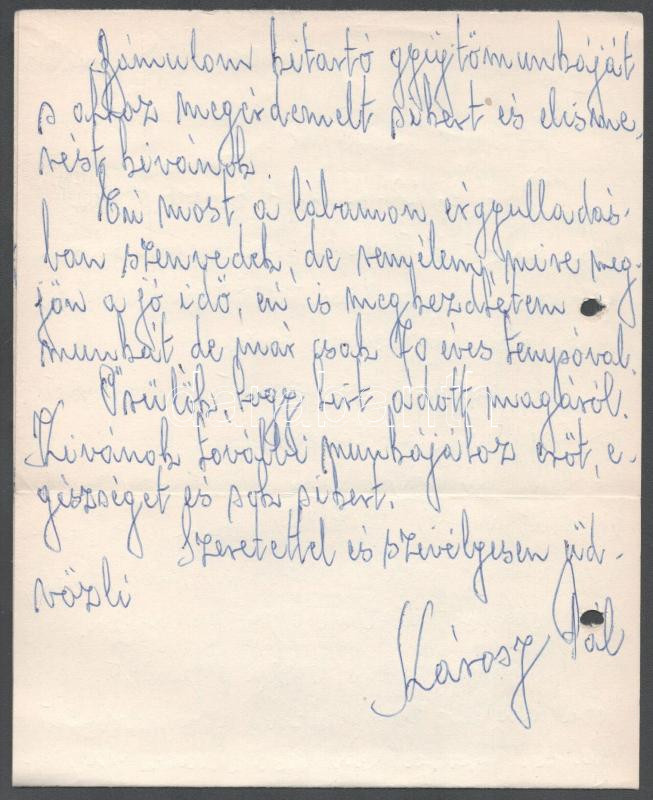 Bámulom kitartó gyűjtőmunkáját
s ahhoz megérdemelt sikert és elisme-
rést kivánok.
Én most a lábamon érgyulladás-
ban szenvedek, de remélem, mire meg-
jön a jó idő, én is megkezdhetem
munkát de már csak 70 éves tempóval.
Örülök, hogy hirt adott magáról.
Kivánok további munkájához erőt, e-
gészséget és sok sikert.
Szeretettel és szivélyesen üd-
vözli
Károsz Pál
darabanth